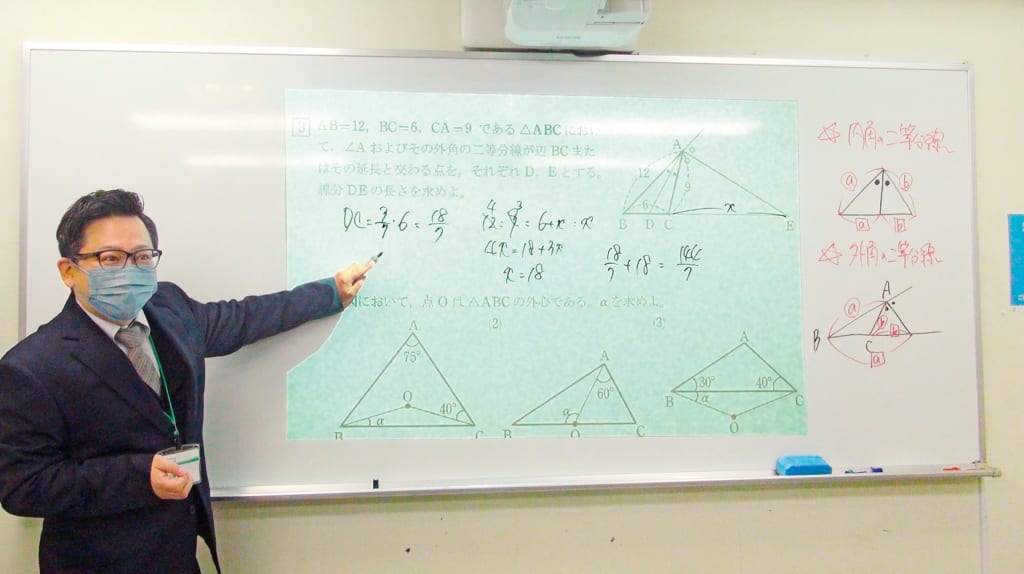 3 AB=12, BC=6, CA=9 である △ABC におい
て，∠A およびその外角の二等分線が辺 BC また
はその延長と交わる点を，それぞれ D，E とする。
線分 DE の長さを求めよ。
A
12
9
6
x
B D C E
DC=3/7・6=18/7
4 3
12:9=6+x:x
4x=18+3x
x=18
18/7+18=144/7
において，点 O は △ABC の外心である。α を求めよ。
(2)
(3)
A
75°
O
α
40°
B
C
A
60°
α
B
O
C
A
30°
40°
B
α
C
O
☆ 内角の二等分線
a
b
a
b
☆ 外角の二等分線
A
a
b
B
C
b
a